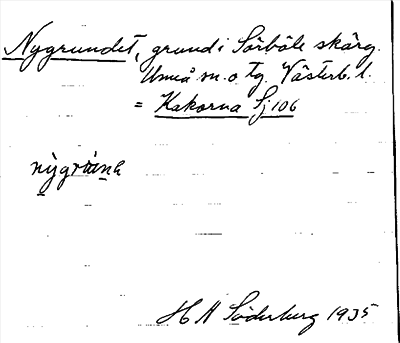 Nygrundet, grund i Sörböle skärg.
Umeå s.o tg. Västerb. l.
= Kakorna Sj 106
nỳgrùnₑ
H A Söderberg 1935